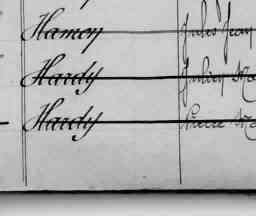 Hamon Jules Jean
Hardy Julien Ma
Hardy Pierre Ma